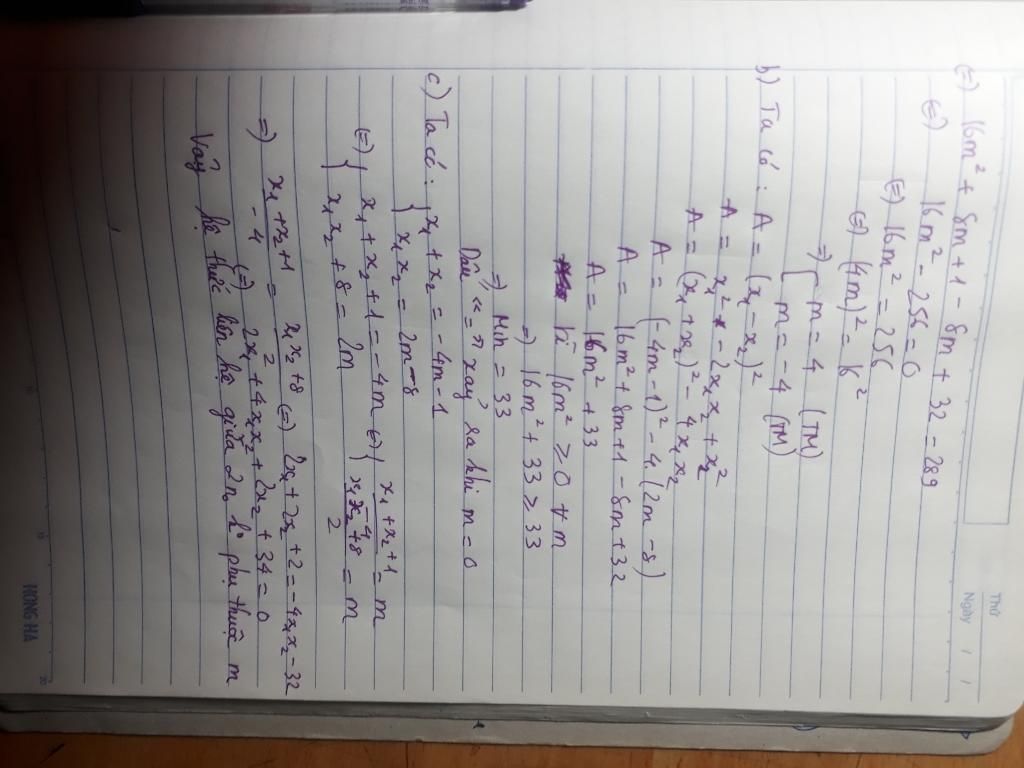 Thứ
Ngày / /
(=) 16m² + 8m + 1 - 8m + 32 = 289
(=) 16m² - 256 = 0
(=) 16m² = 256
(=) (4m)² = 16²
=) [ m = 4 (TM)
m = -4 (TM)
b) Ta có : A = (x₁ - x₂)²
A = x₁² - 2x₁x₂ + x₂²
A = (x₁ + x₂)² - 4x₁x₂
A = (-4m - 1)² - 4.(2m - 8)
A = 16m² + 8m + 1 - 8m + 32
A = 16m² + 33
Vì 16m² ≥ 0 ∀ m
=) 16m² + 33 ≥ 33
=) Min = 33
Dấu "=" xảy ra khi m = 0
c) Ta có : { x₁ + x₂ = -4m - 1
x₁x₂ = 2m - 8
(=) { x₁ + x₂ + 1 = -4m (=) { (x₁ + x₂ + 1)/-4 = m
x₁x₂ + 8 = 2m (x₁x₂ + 8)/2 = m
=) (x₁ + x₂ + 1)/-4 = (x₁x₂ + 8)/2 (=) 2x₁ + 2x₂ + 2 = -4x₁x₂ - 32
(=) 2x₁ + 4x₁x₂ + 2x₂ + 34 = 0
Vậy hệ thức liên hệ giữa 2 no ko phụ thuộc m
HONG HA